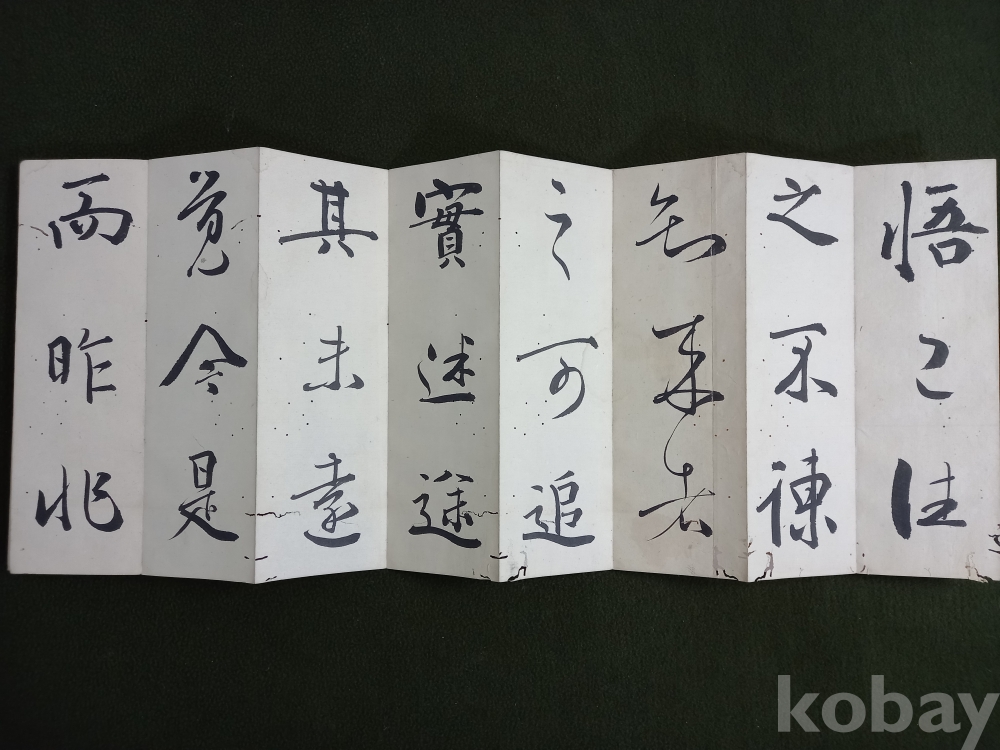 悟已往
之不諫
知来者
之可追
實迷途
其未遠
覺今是
而昨非
kobay